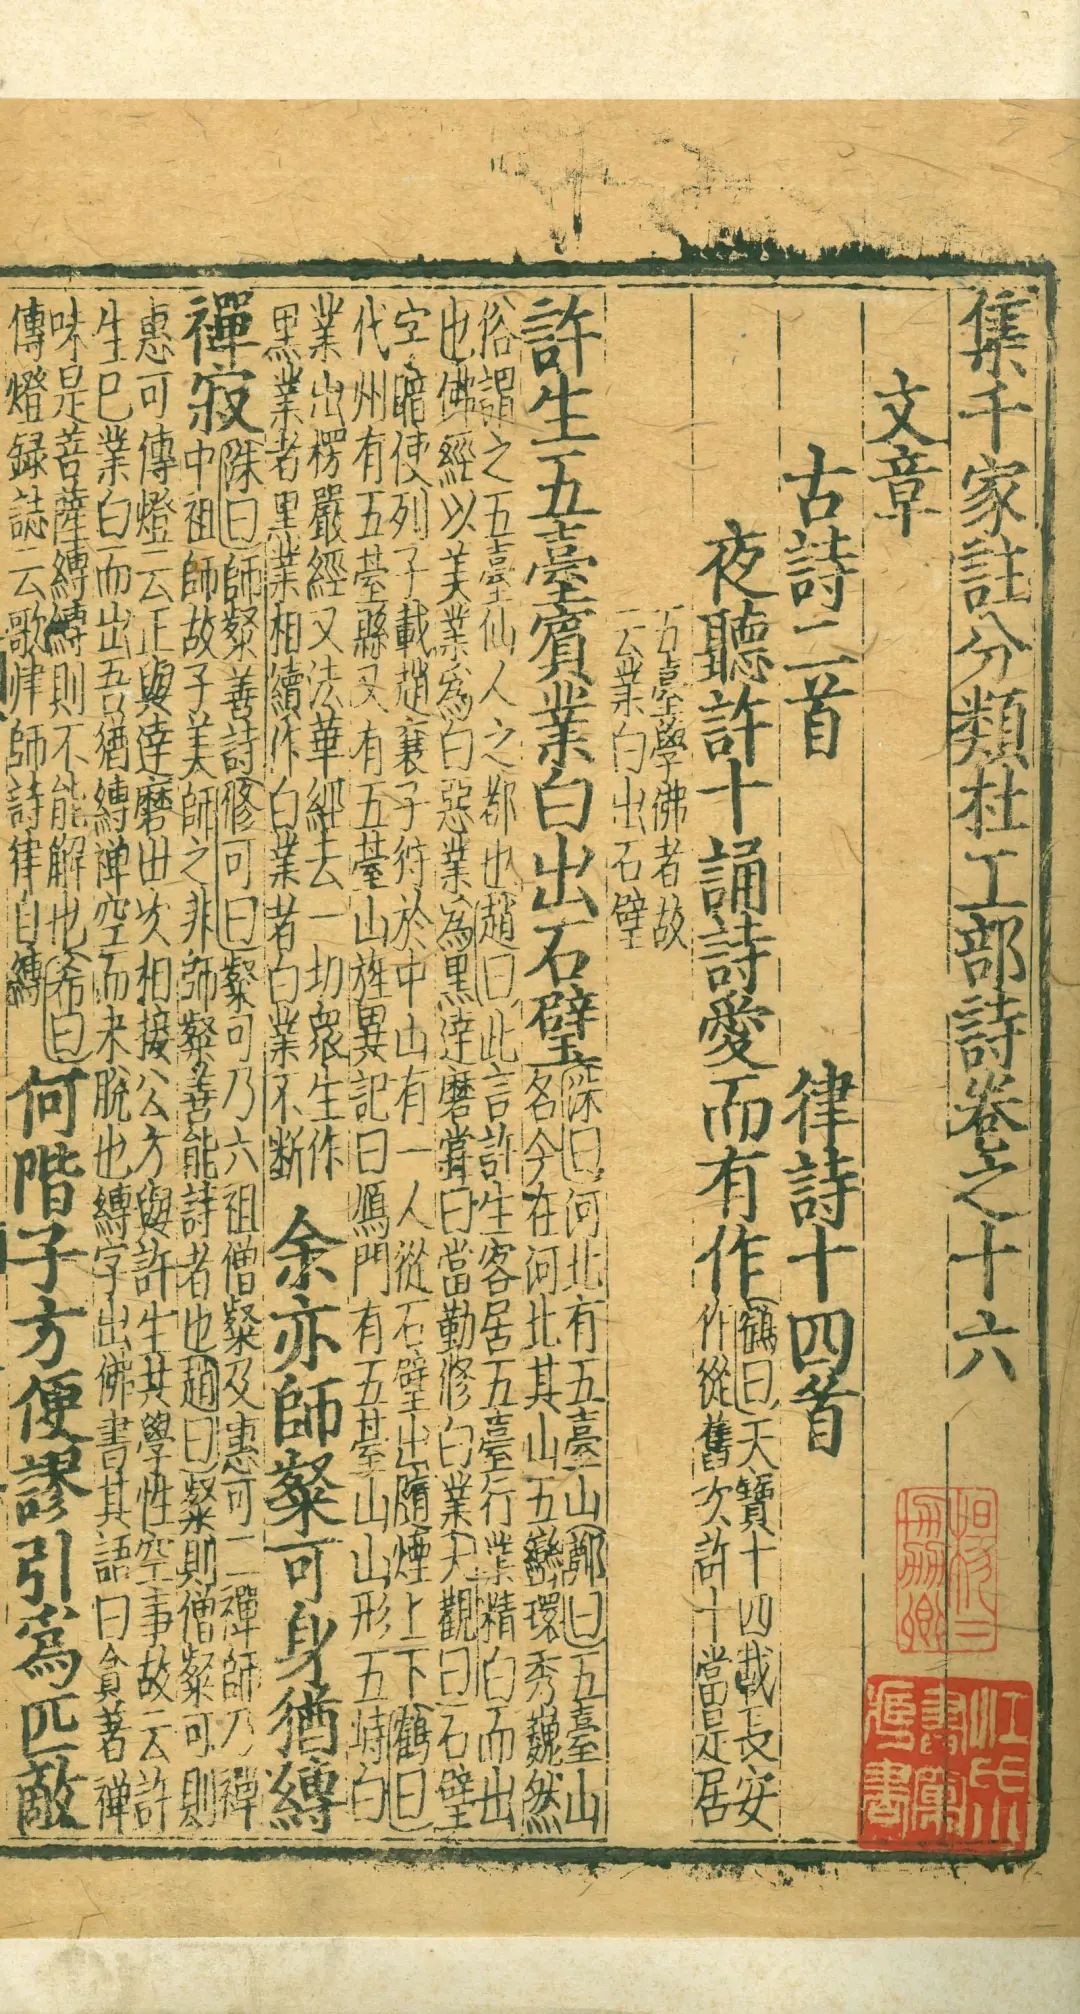 集千家註分類杜工部詩卷之十六
文章
古詩二首　律詩十四首
夜聽許十誦詩愛而有作
鶴曰天寶十四載長安
作從舊次許十當是居
五臺學佛者故
云業白出石壁
許生五臺賓業白出石壁
深曰河北有五臺山鄭曰五臺山
名今在河北其山五巒環秀巍然
俗謂之五臺仙人之都也趙曰此言許生客居五臺行業精白而出
也佛經以美業為白惡業為黑達磨嘗曰當勤修白業天觀曰石壁
空瞻使列子載趙襄子狩於中山有一人從石壁出隨煙上下鶴曰
代州有五臺縣又有五臺山旌異記曰鴈門有五臺山山形五峙白
業出楞嚴經又法華經去一切眾生作
黑業者黑業相續作白業者白業不斷
余亦師粲可身猶縛
禪寂
洙曰師粲善詩修可曰粲可乃六祖僧粲及惠可二禪師乃禪
中祖師故子美師之非師粲善能詩者也趙曰粲則僧粲可則
惠可傳燈云正與達磨世次相接公方與許生共學性空事故云許
生已業白而出吾猶縛禪空而未脫也縛字出佛書其語曰貪著禪
味是菩薩縛縛則不能解也希曰
傳燈録誌云歌律師詩律自縛
何階子方便謬引為匹敵
江氏